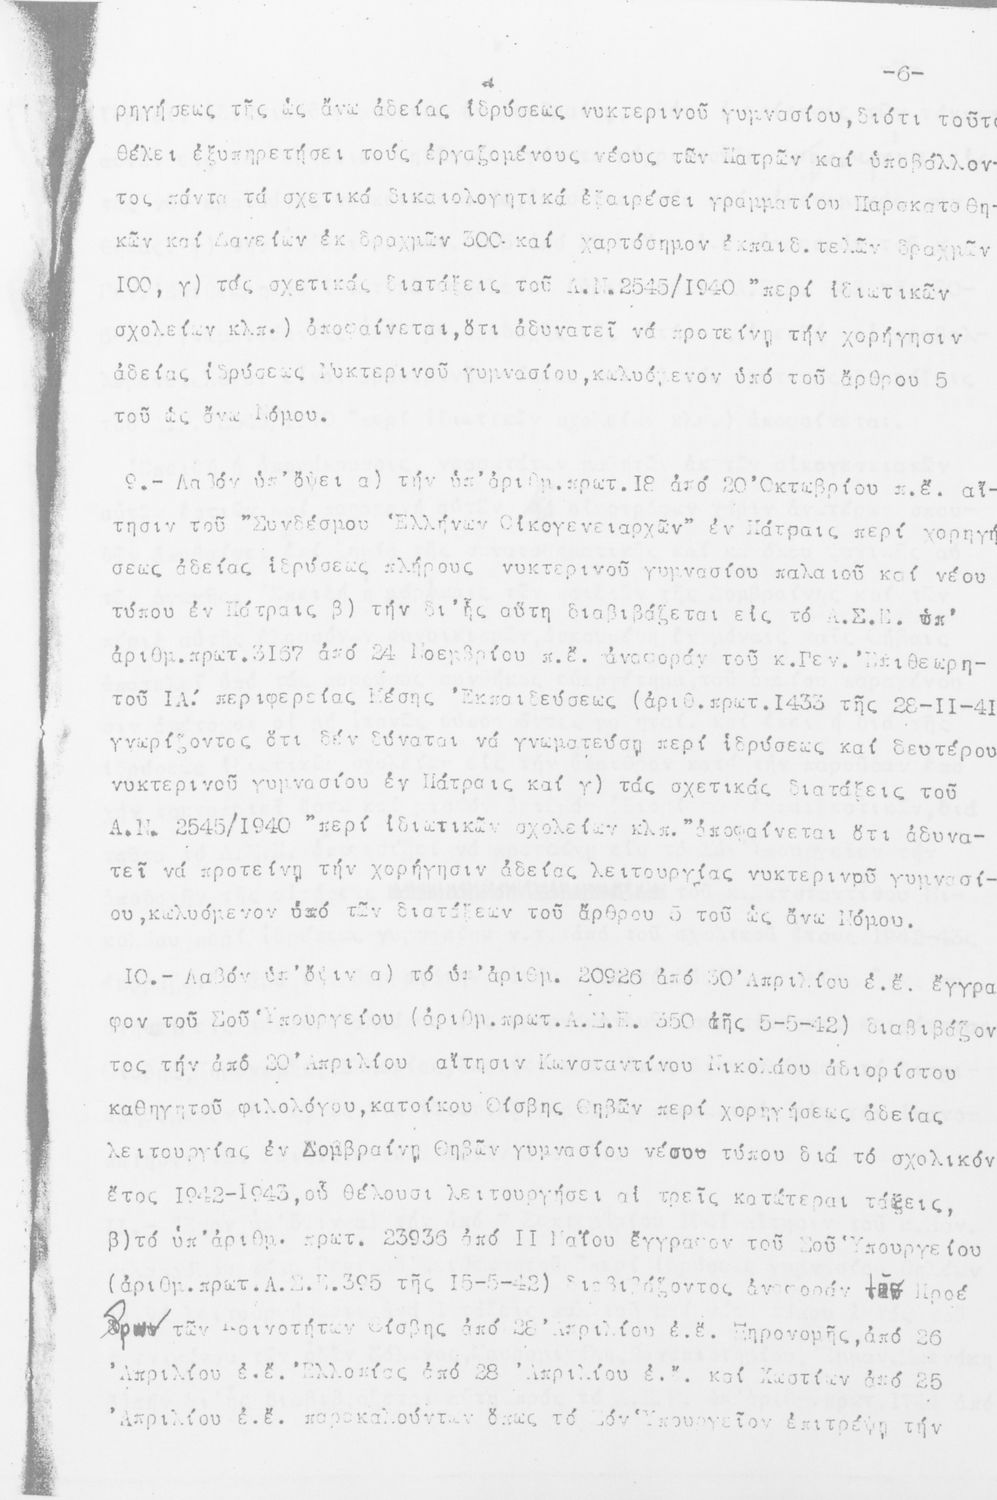 -6-
ρηγήσεως τῆς ὡς ἄνω ἀδείας ἱδρύσεως νυκτερινοῦ γυμνασίου,διότι τοῦτο
θέλει ἐξυπηρετήσει τούς ἐργαζομένους νέους τῶν Πατρῶν καί ὑποβάλλον-
τος πάντα τά σχετικά δικαιολογητικά ἐξαιρέσει γραμματίου Παρακαταθη-
κῶν καί Δανείων ἐκ δραχμῶν 300 καί χαρτόσημον ἐκπαιδ.τελῶν δραχμῶν
100, γ) τάς σχετικάς διατάξεις τοῦ Α.Ν.2545/1940 "περί ἰδιωτικῶν
σχολείων κλπ.) ἀποφαίνεται,ὅτι ἀδυνατεῖ νά προτείνῃ τήν χορήγησιν
ἀδείας ἱδρύσεως Νυκτερινοῦ γυμνασίου,κωλυόμενον ὑπό τοῦ ἄρθρου 5
τοῦ ὡς ἄνω Νόμου.
9.- Λαβόν ὑπ'ὄψει α) τήν ὑπ'ἀριθμ.πρωτ.18 ἀπό 20 'Οκτωβρίου π.ἔ. αἴ-
τησιν τοῦ "Συνδέσμου Ἑλλήνων Οἰκογενειαρχῶν" ἐν Πάτραις περί χορηγή
σεως ἀδείας ἱδρύσεως πλήρους νυκτερινοῦ γυμνασίου παλαιοῦ καί νέου
τύπου ἐν Πάτραις β) τήν δι'ἧς αὕτη διαβιβάζεται εἰς τό Α.Σ.Ε. ὑπ'
ἀριθμ.πρωτ.3167 ἀπό 24 Νοεμβρίου π.ἔ. ἀναφοράν τοῦ κ.Γεν.'Επιθεωρη-
τοῦ ΙΑ΄ περιφερείας Μέσης 'Εκπαιδεύσεως (ἀριθ.πρωτ.1433 τῆς 28-11-41
γνωρίζοντος ὅτι δέν δύναται νά γνωματεύσῃ περί ἱδρύσεως καί δευτέρου
νυκτερινοῦ γυμνασίου ἐν Πάτραις καί γ) τάς σχετικάς διατάξεις τοῦ
Α.Ν. 2545/1940 "περί ἰδιωτικῶν σχολείων κλπ."ἀποφαίνεται ὅτι ἀδυνα-
τεῖ νά προτείνῃ τήν χορήγησιν ἀδείας λειτουργίας νυκτερινοῦ γυμνασί-
ου,κωλυόμενον ὑπό τῶν διατάξεων τοῦ ἄρθρου 5 τοῦ ὡς ἄνω Νόμου.
10.- Λαβόν ὑπ'ὄψιν α) τό ὑπ'ἀριθμ. 20926 ἀπό 30 'Απριλίου ἐ.ἔ. ἔγγρα
φον τοῦ Σοῦ Ὑπουργείου (ἀριθμ.πρωτ.Α.Σ.Ε. 350 τῆς 5-5-42) διαβιβάζον
τος τήν ἀπό 20 'Απριλίου αἴτησιν Κωνσταντίνου Νικολάου ἀδιορίστου
καθηγητοῦ φιλολόγου,κατοίκου Θίσβης Θηβῶν περί χορηγήσεως ἀδείας
λειτουργίας ἐν Δομβραίνῃ Θηβῶν γυμνασίου νέου τύπου διά τό σχολικόν
ἔτος 1942-1943,οὗ θέλουσι λειτουργήσει αἱ τρεῖς κατώτεραι τάξεις,
β)τό ὑπ'ἀριθμ. πρωτ. 23936 ἀπό 11 Μαΐου ἔγγραφον τοῦ Σοῦ Ὑπουργείου
(ἀριθμ.πρωτ.Α.Σ.Ε.395 τῆς 15-5-42) διαβιβάζοντος ἀναφοράν τῶν Προέ
δρων τῶν Κοινοτήτων Θίσβης ἀπό 28 'Απριλίου ἐ.ἔ. Ξηρονομῆς,ἀπό 26
'Απριλίου ἐ.ἔ. 'Ελλοπίας ἀπό 28 'Απριλίου ἐ.ἔ. καί Χωστίων ἀπό 25
'Απριλίου ἐ.ἔ. παρακαλούντων ὅπως τό Σόν Ὑπουργεῖον ἐπιτρέψῃ τήν